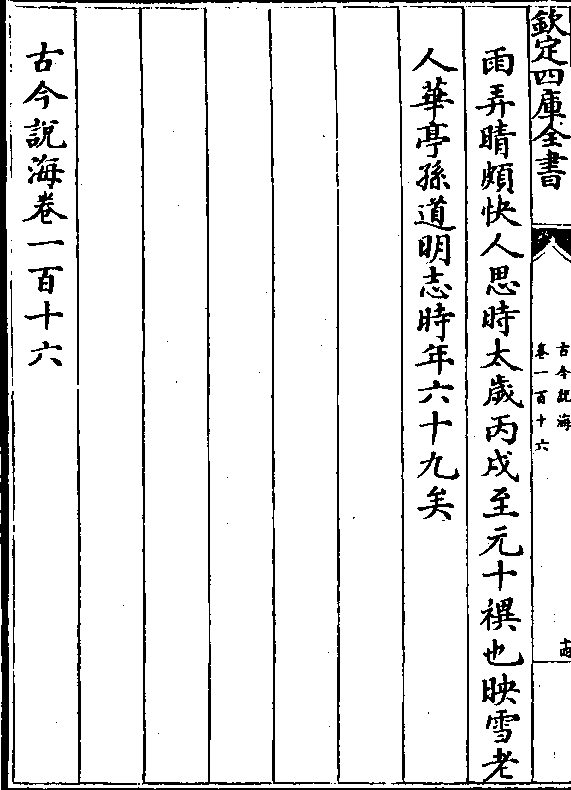 欽定四庫全書
古今説海
卷一百十六
十四
雨弄晴頗快人思時太歲丙戌至元十禩也映雪老
人華亭孫道明志時年六十九矣
古今説海卷一百十六